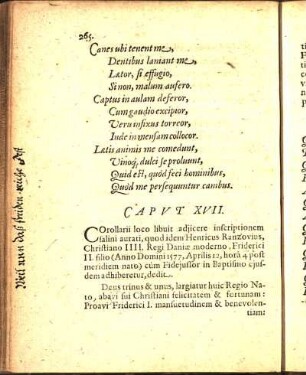 265.
Canes ubi tenent me,
Dentibus laniant me
Lator, si effugio,
Si non, malum aufero.
Captus in aulam deferor,
Cum gaudio excipior,
Veru infixus torreor,
Inde in mensam collocor.
Lætis animis me comedunt,
Vinoq; dulci se proluunt,
Quid est, quód feci hominibus,
Quòd me persequuntur canibus.
CAPVT XVII.
COrollarii loco libuit adjicere inscriptionem
salini aurati, quod idem Henricus Ranzovius,
Christiano IIII. Regi Daniæ moderno, Friderici
II. filio (Anno Domini 1577, Aprilis 12, horâ 4 post
meridiem nato) cùm Fidejussor in Baptismo ejus-
dem adhiberetur, dedit.
Deus trinus & unus, largiatur huic Regio Na-
to, abavi sui Christiani felicitatem & fortunam:
Proavi Friderici I. mansuetudinem & benevolen-
tiam: